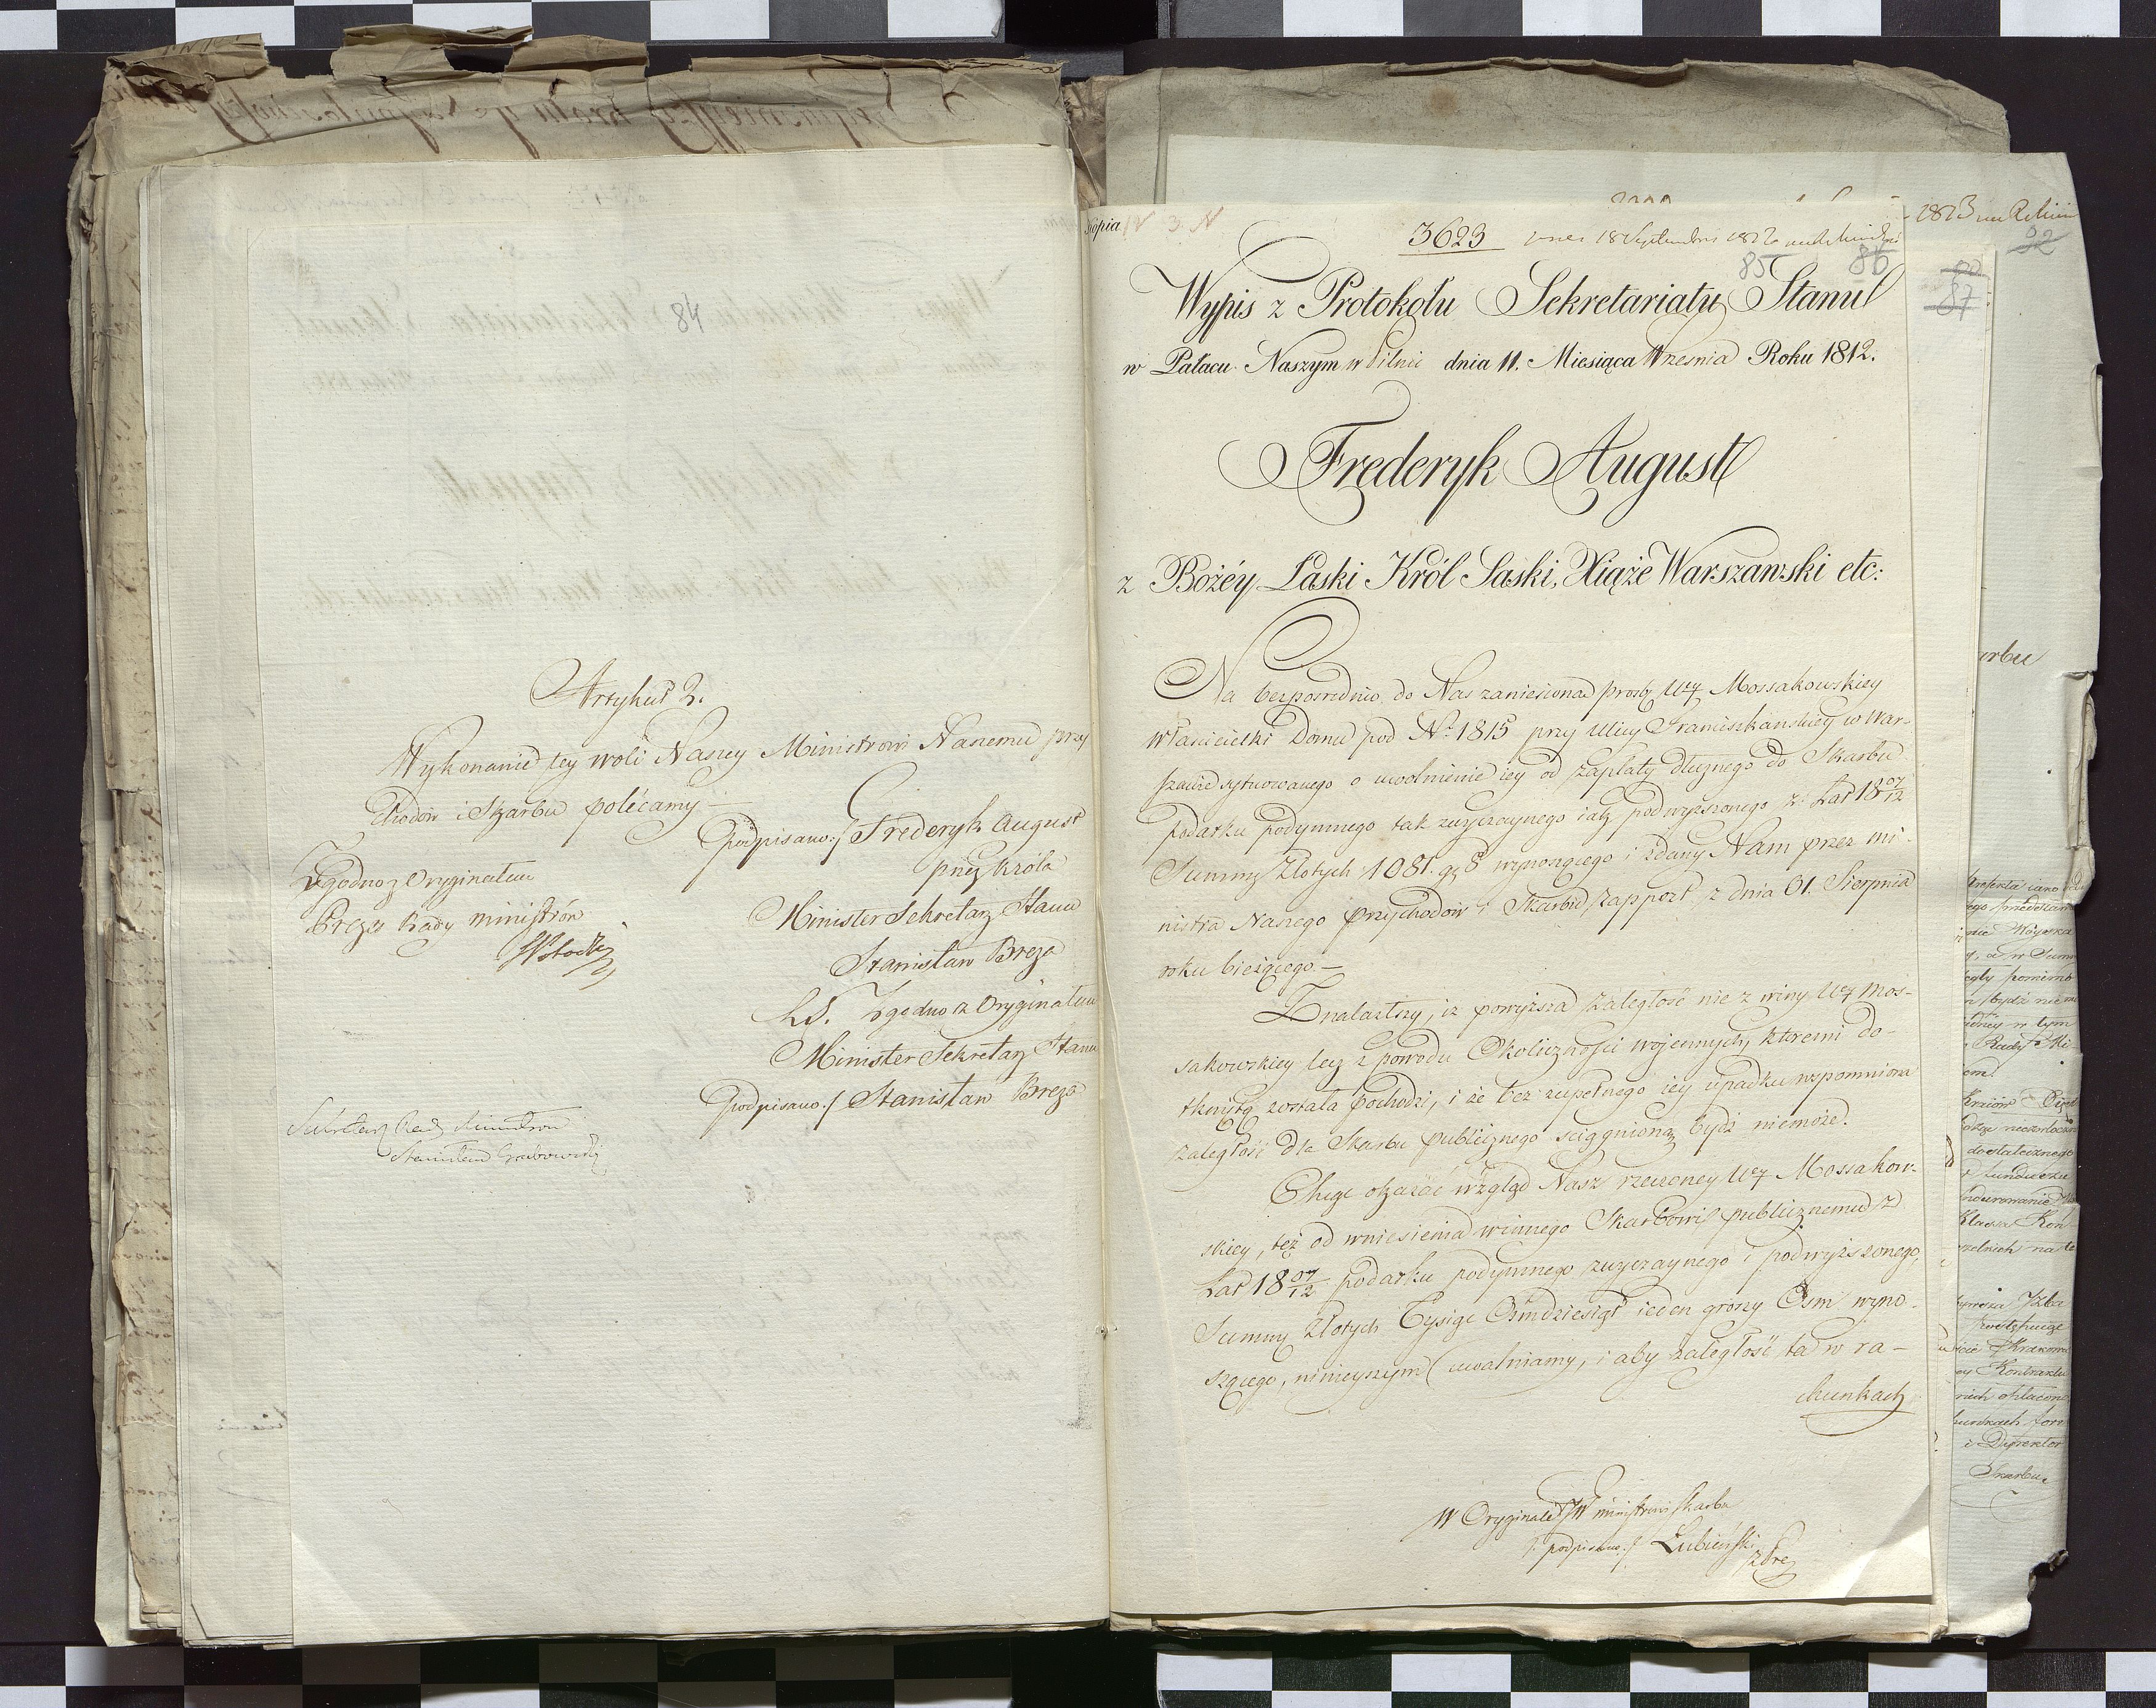 84
Artykuł 2.
Wykonanie tey woli Naszey Ministrowi Naszemu przy
chodow i Skarbu polécamy —
podpisano:/ Frederyk August
przez Króla
Minister Sekretarz Stanu
Stanisław Breza
L.S. Zgodno z Oryginałem
Minister Sekretarz Stanu
podpisano:/ Stanisław Breza
Zgodno z Oryginałem
Prezes Rady Ministrów
Sekretarz Rady Ministrow
Stanisław Grabowski
Kopia
3623 18 Septembris 1812
85 86
Wypis z Protokołu Sekretariatu Stanu
w Pałacu Naszym w Pilnic dnia 11. Miesiąca Wrzesnia Roku 1812.
Frederyk August
z Bożéy Łaski Król Saski, Xiąże Warszawski etc:
Na bezposrednio do Nas zaniesioną prozbę Ury Mossakowskiey
własicielki Domu pod Nº 1815 przy Ulicy Franciszkanskiey w War-
szawie sytuowanego o uwolnienie iey od zapłaty dłużnego do Skarbu
podatku podymnego tak zwyczaynego iako podwyższonego z Lat 18 07/12
Summę Złotych 1081. gr 8 wynoszącego i zdany Nam przez mi-
nistra Naszego przychodow i Skarbu rapport z dnia 31. Sierpnia
roku bieżącego. —
Znalazłszy, iż powyższa zaległość nie z winy Ury Mos-
sakowskiey lecz z powodu Okoliczności wojennych, ktoremi do-
tkniętą została pochodzi, i że bez zupełnego iey upadku wspomniona
zaległość dla Skarbu publicznego sciągnioną bydź niemoże.
Chcąc okazać wzgląd Nasz rzeczoney Ury Mossakow-
skiey, też od wniesienia winnego Skarbowi publicznemu z
Lat 18 07/12 podatku podymnego zwyczaynego i podwyższonego,
Summę Złotych Tysiąc Ośmdziesiąt ieden groszy Osm wyno-
szącego, ninieyszym uwalniamy, i aby zaległość ta w ra-
chunkach
W Oryginale JW ministrowi skarbu
/: podpisano:/ Łubieński
z Pre
1813
92
87